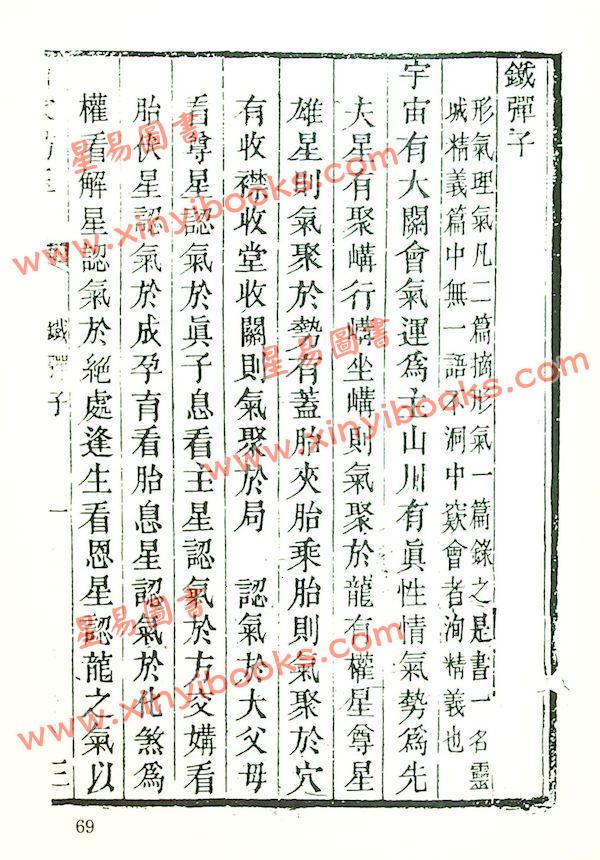 鐵彈子
形氣理氣凡二篇摘形氣一篇錄之是書一名靈
城精義篇中無一語不洞中窽會者洵精義也
宇宙有大關會氣運爲主山川有眞性情氣勢爲先
大星有聚媾行媾坐媾則氣聚於龍有權星尊星
雄星則氣聚於勢有蓋胎夾胎乘胎則氣聚於穴
有收襟收堂收關則氣聚於局 認氣於大父母
看尊星認氣於眞子息看主星認氣於方交媾看
胎伏星認氣於成孕育看胎息星認氣於化煞爲
權看解星認氣於絕處逢生看恩星認龍之氣以
鐵彈子 一
三
69
星易圖書
www.xinyibooks.com
星易圖書
www.xinyibooks.com
星易圖書
www.xinyibooks.com